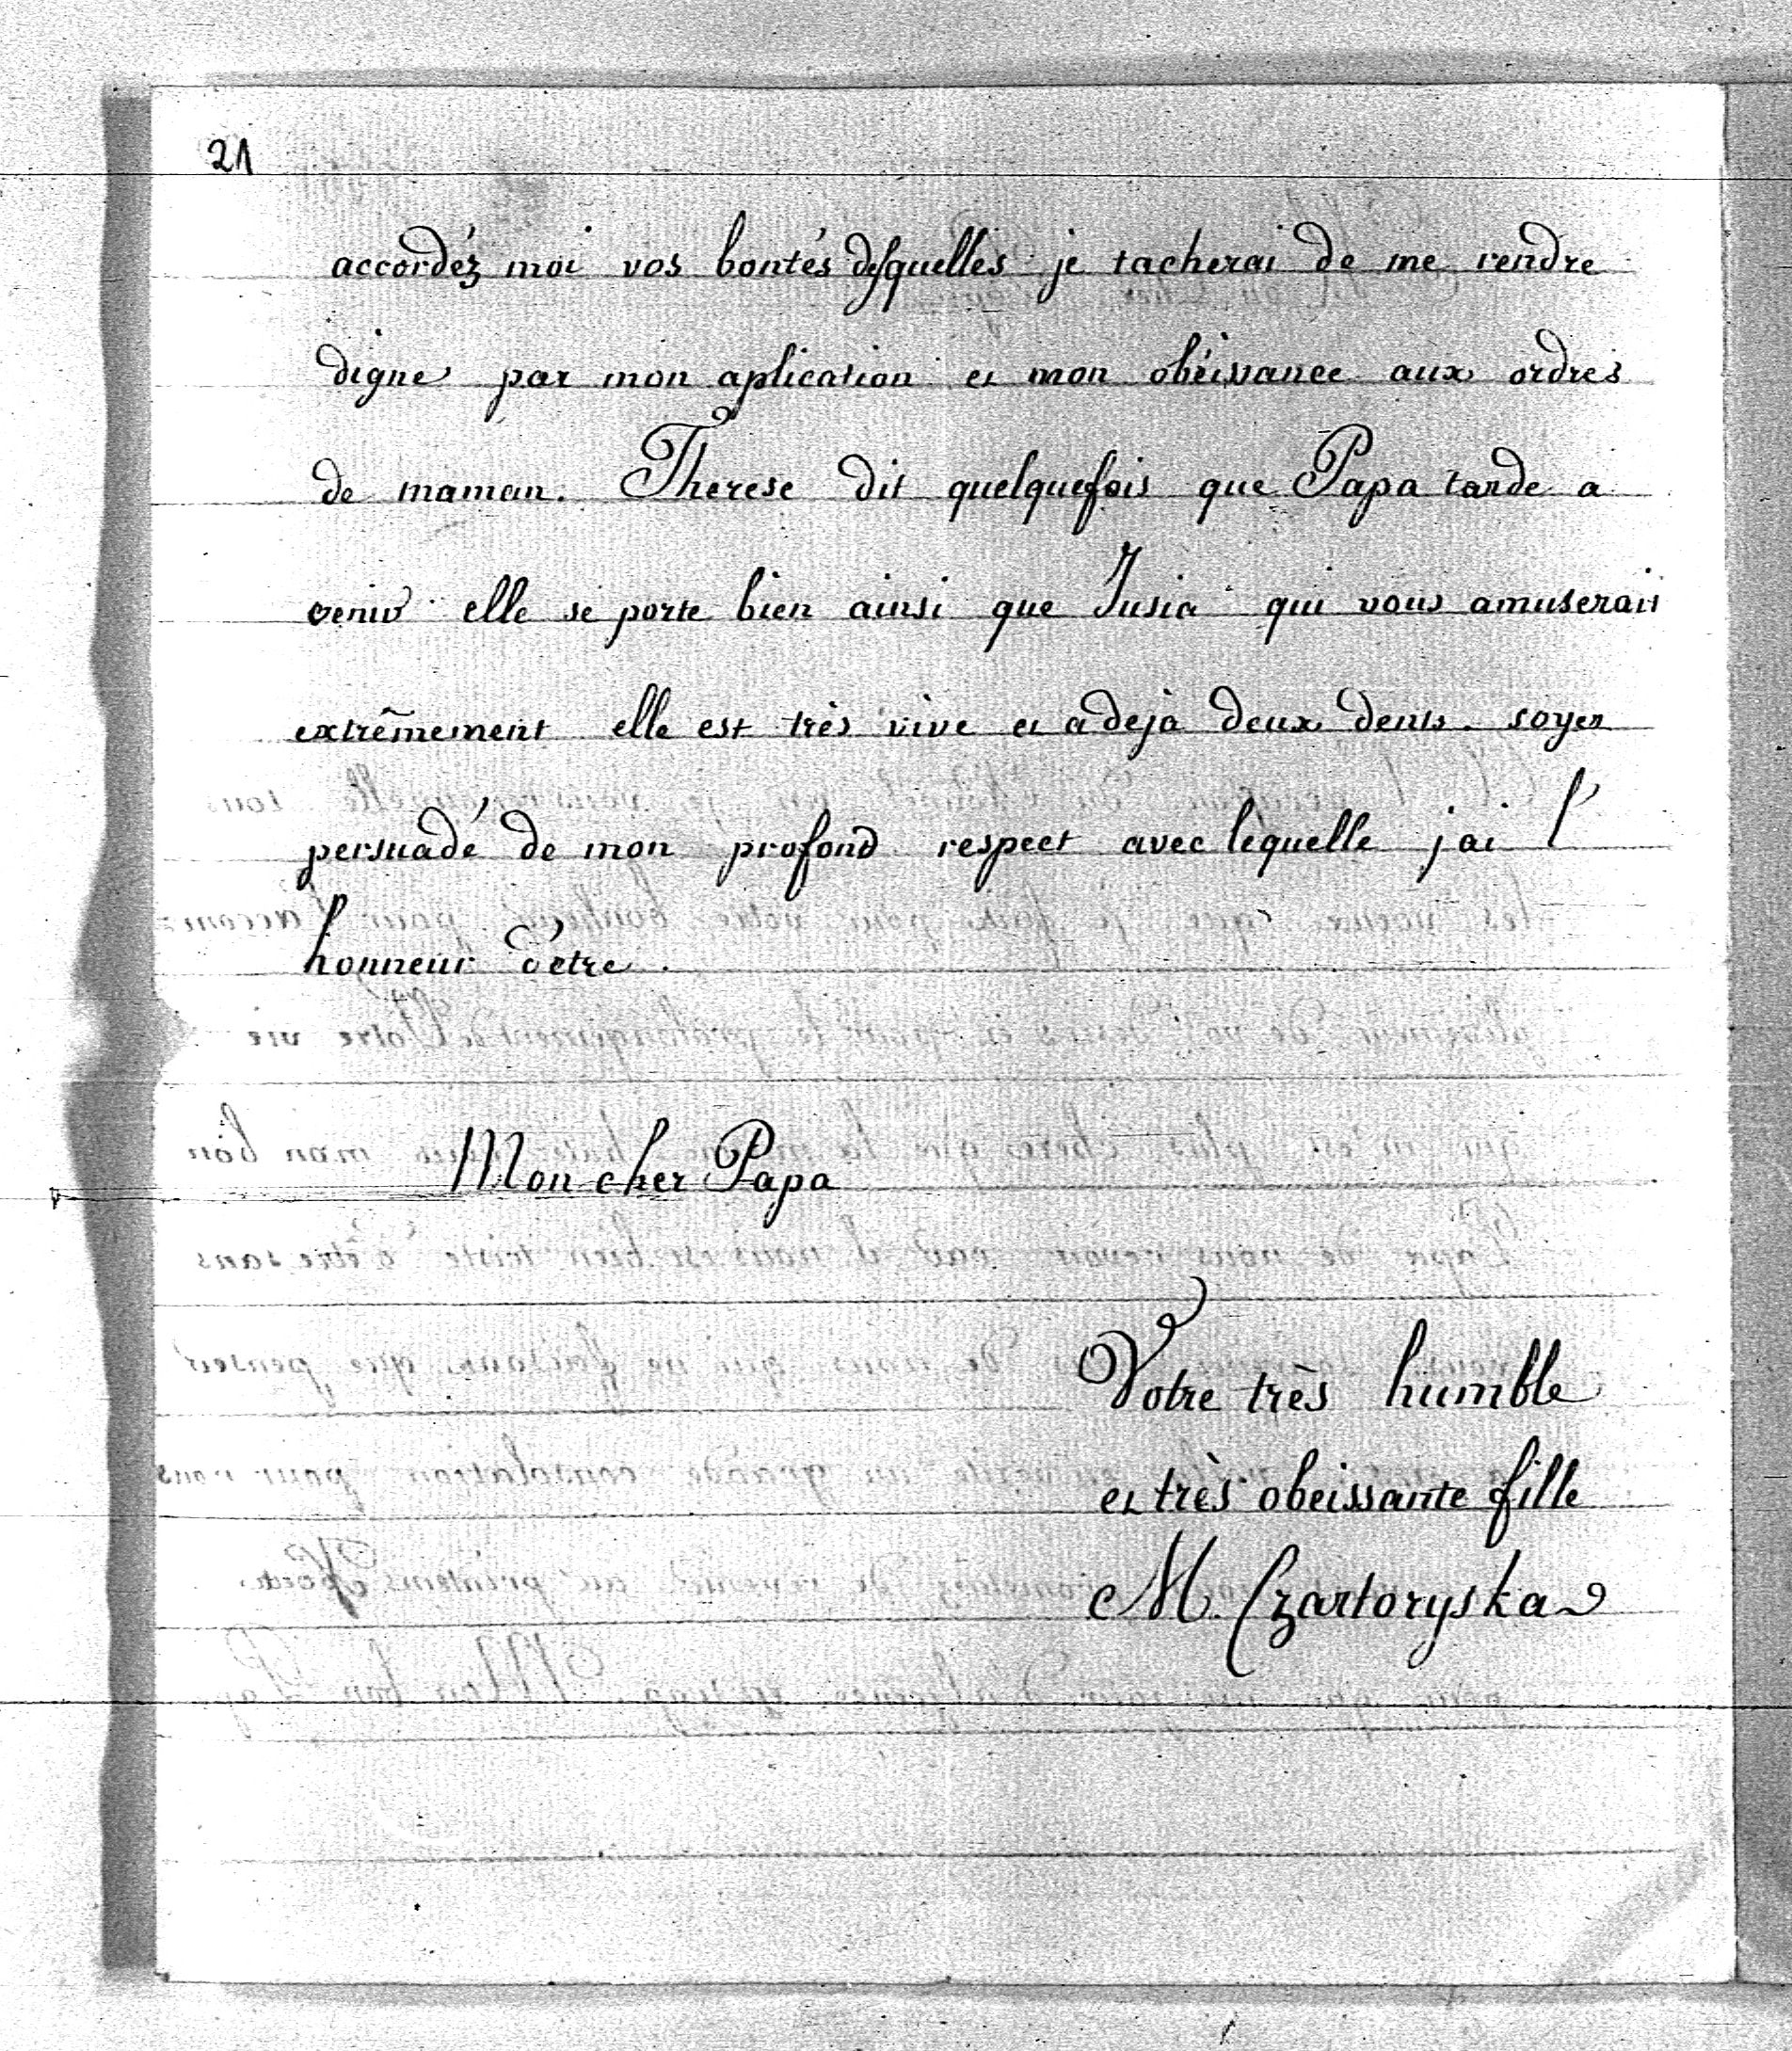 21
accordéz moi vos bontés desquelles je tacherai de me rendre
digne par mon aplication et mon obéissance aux ordres
de maman. Therese dit quelquefois que Papa tarde a
venir elle se porte bien ainsi que Jusia qui vous amuserait
extrêmement elle est très vive et a dejà deux dents. soyez
persuadé de mon profond respect avec lequelle j'ai l'
honneur d'etre.
Mon cher Papa
Votre très humble
et très obeissante fille
M. Czartoryska